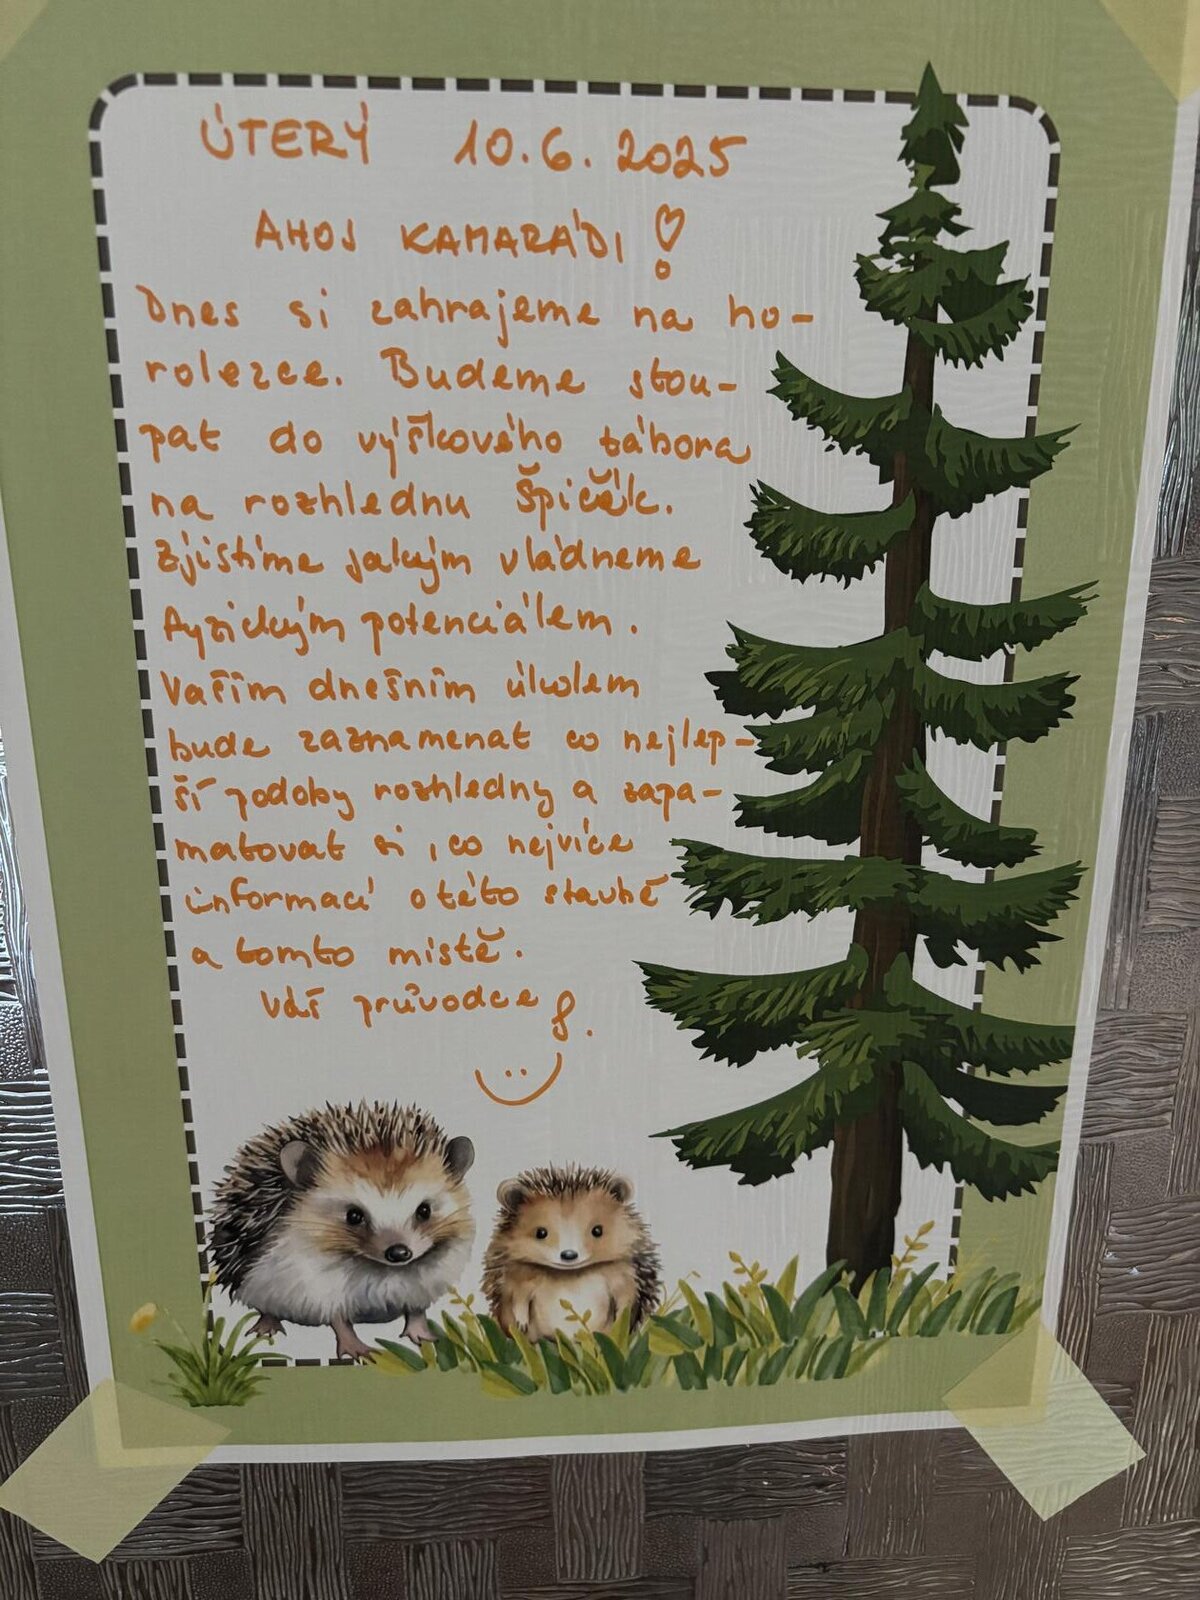 ÚTERÝ 10.6.2025
AHOJ KAMARÁDI!
Dnes si zahrajeme na ho-
rolezce. Budeme stou-
pat do výškového tábora
na rozhlednu Špičák.
Zjistíme jakým vládneme
fyzickým potenciálem.
Vaším dnešním úkolem
bude zaznamenat co nejlep-
ší podoby rozhledny a zapa-
matovat si, co nejvíce
informací o této stavbě
a tomto místě.
Váš průvodce